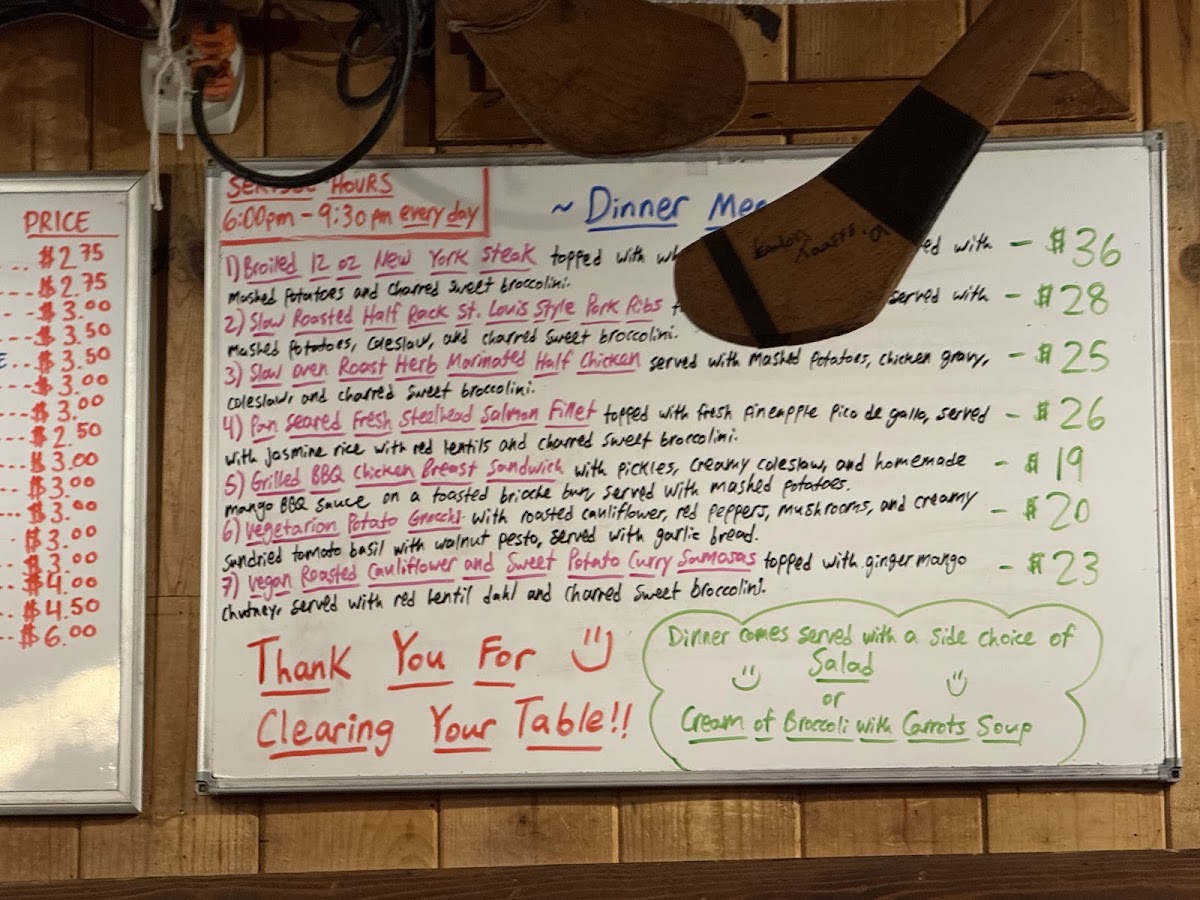 PRICE
$2.75
$2.75
$3.00
$3.50
$3.50
$3.00
$3.00
$2.50
$3.00
$3.00
$3.00
$3.00
$3.00
$4.00
$4.50
$6.00
SERVICE HOURS
6:00pm - 9:30pm every day
~ Dinner
1) Broiled 12 oz New York Steak topped with with - $36
Mashed Potatoes and Charred Sweet broccolini.
2) Slow Roasted Half Rack St. Louis Style Pork Ribs served with - $28
Mashed Potatoes, Coleslaw, and charred Sweet broccolini.
3) Slow Oven Roast Herb Marinated Half Chicken served with Mashed Potatoes, chicken gravy, - $25
Coleslaw, and charred Sweet broccolini.
4) Pan Seared Fresh Steelhead Salmon Fillet topped with fresh Pineapple Pico de gallo, served - $26
with Jasmine rice with red lentils and charred sweet broccolini.
5) Grilled BBQ Chicken Breast Sandwich with pickles, creamy coleslaw, and homemade - $19
mango BBQ sauce on a toasted brioche bun, served with mashed potatoes.
6) Vegetarian Potato Gnocchi with roasted cauliflower, red peppers, mushrooms, and creamy - $20
Sundried tomato basil with walnut pesto, served with garlic bread.
7) Vegan Roasted Cauliflower and Sweet Potato Curry Samosas topped with ginger mango - $23
Chutney, served with red lentil dahl and Charred Sweet broccolini.
Thank You For
Clearing Your Table!!
Dinner comes served with a side choice of
Salad
or
Cream of Broccoli with Carrots Soup